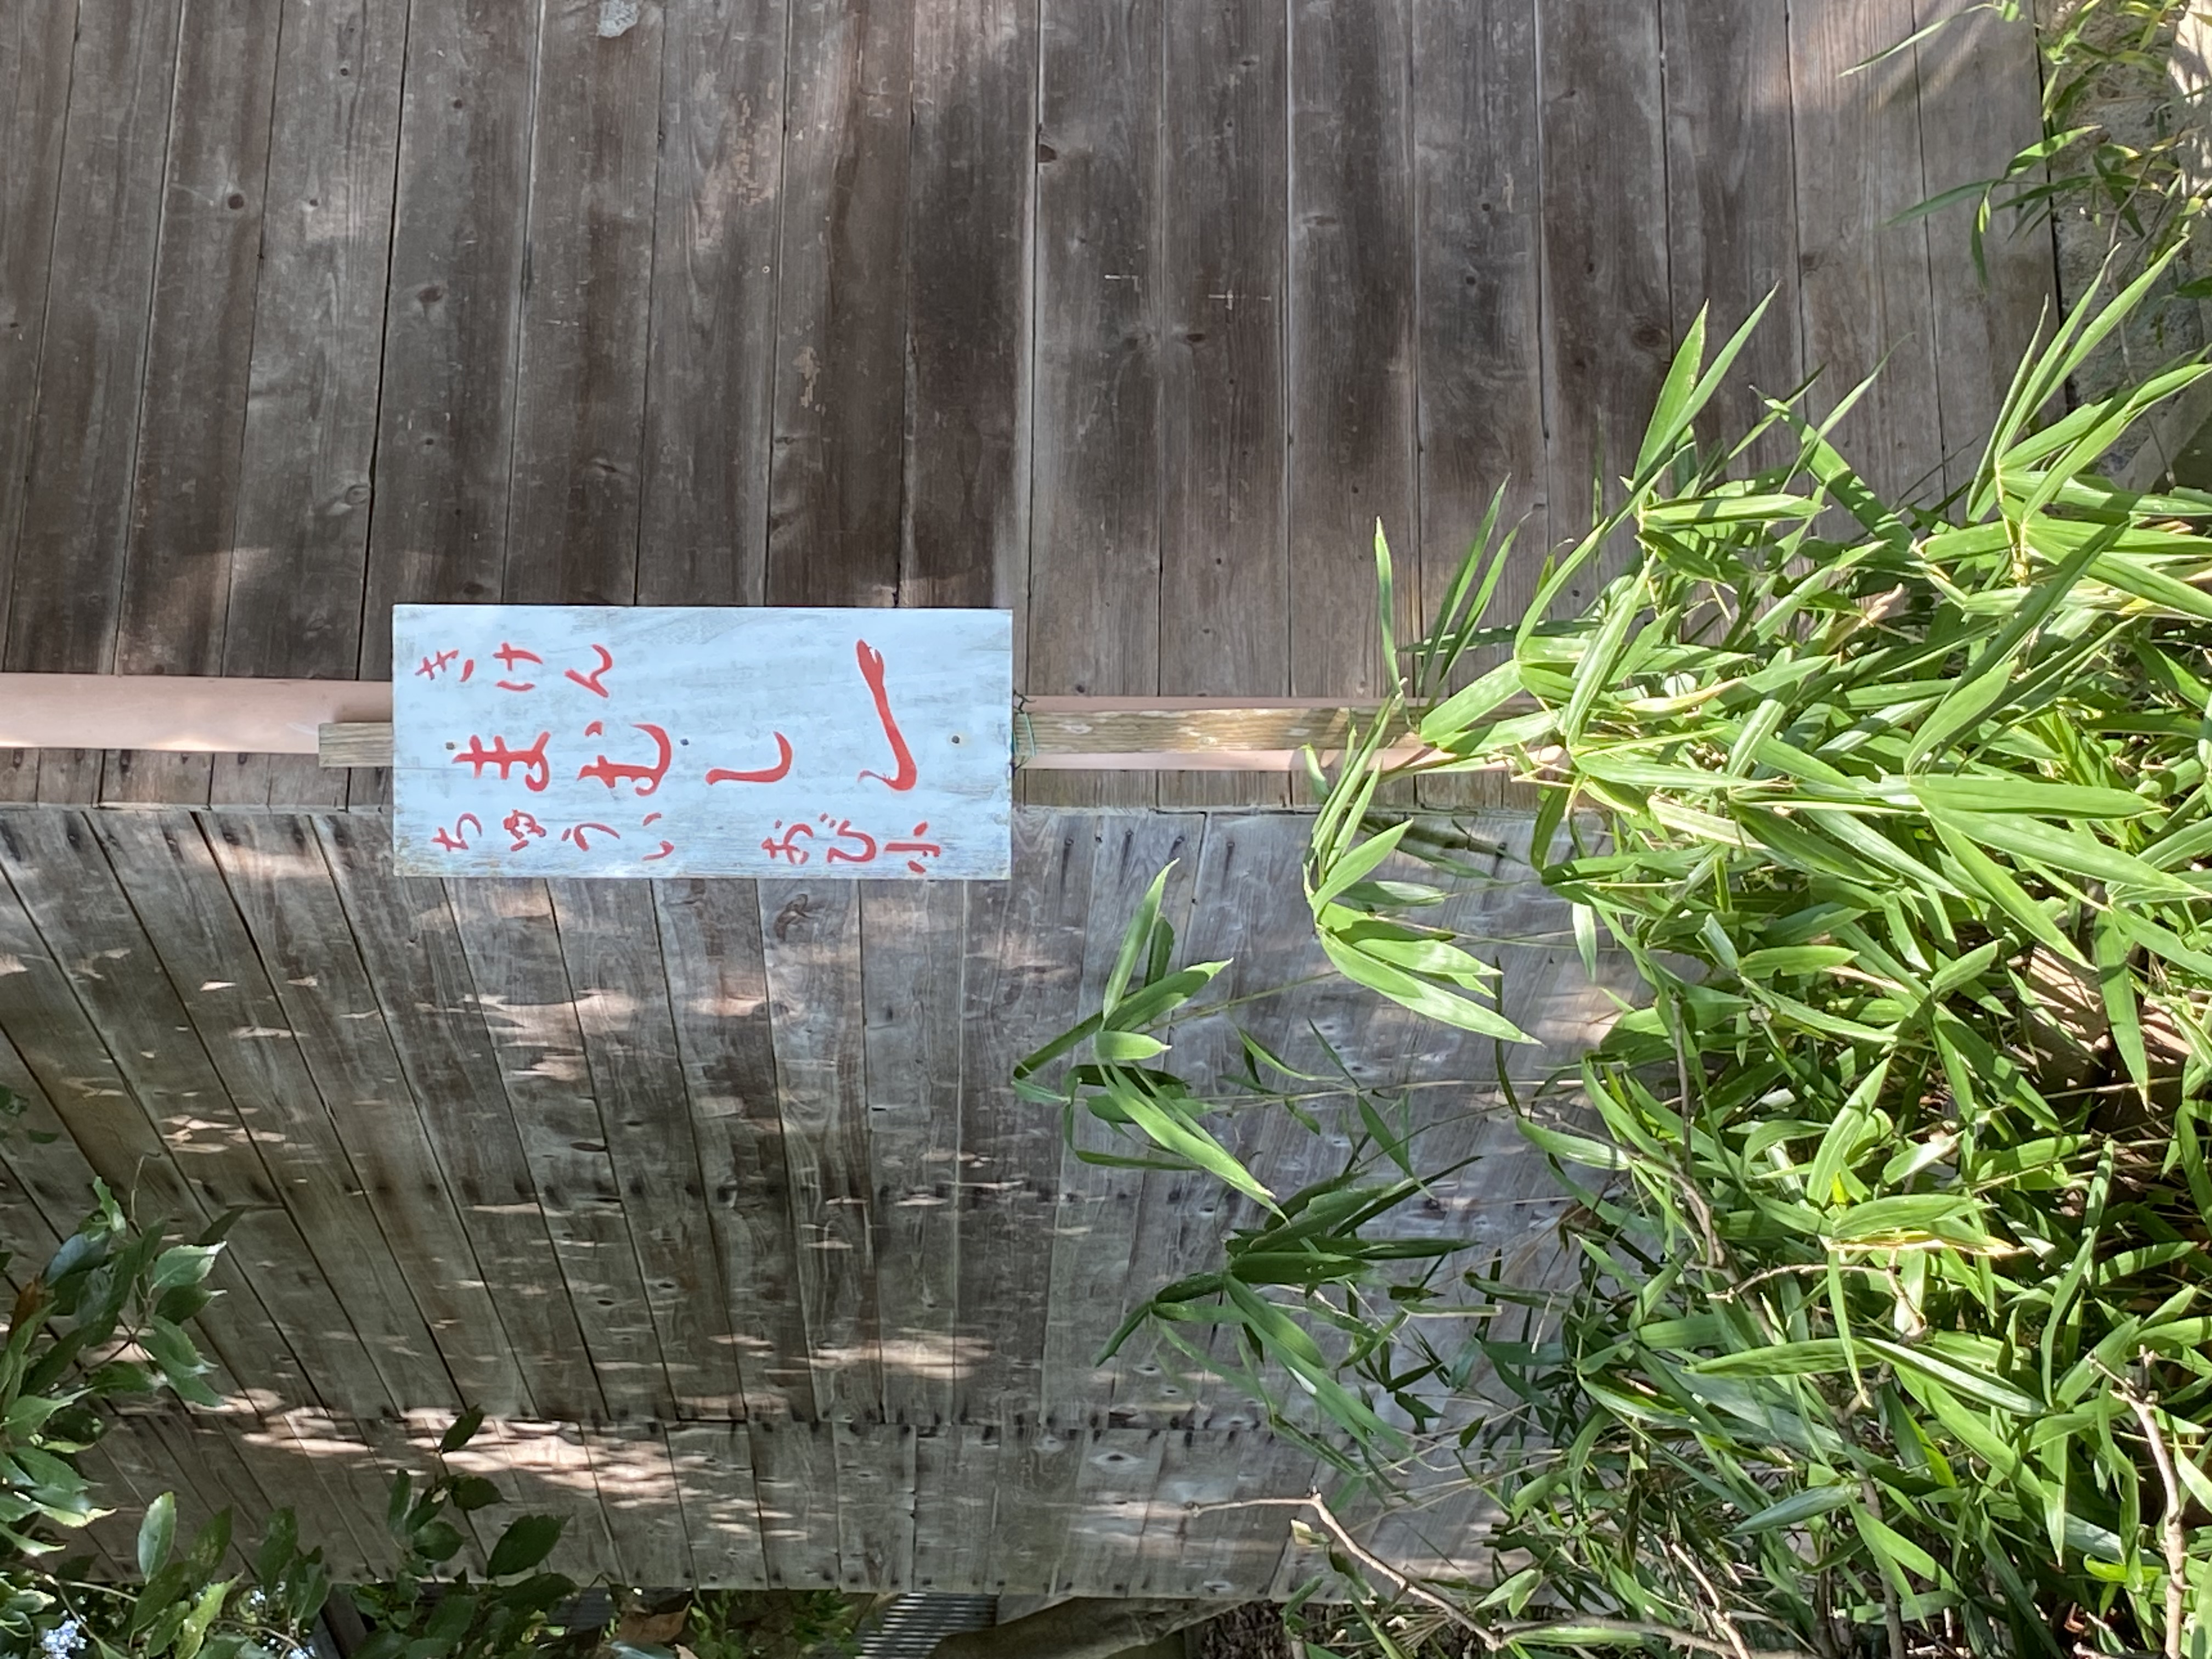 きけん
まむし
ちゅうい おび小